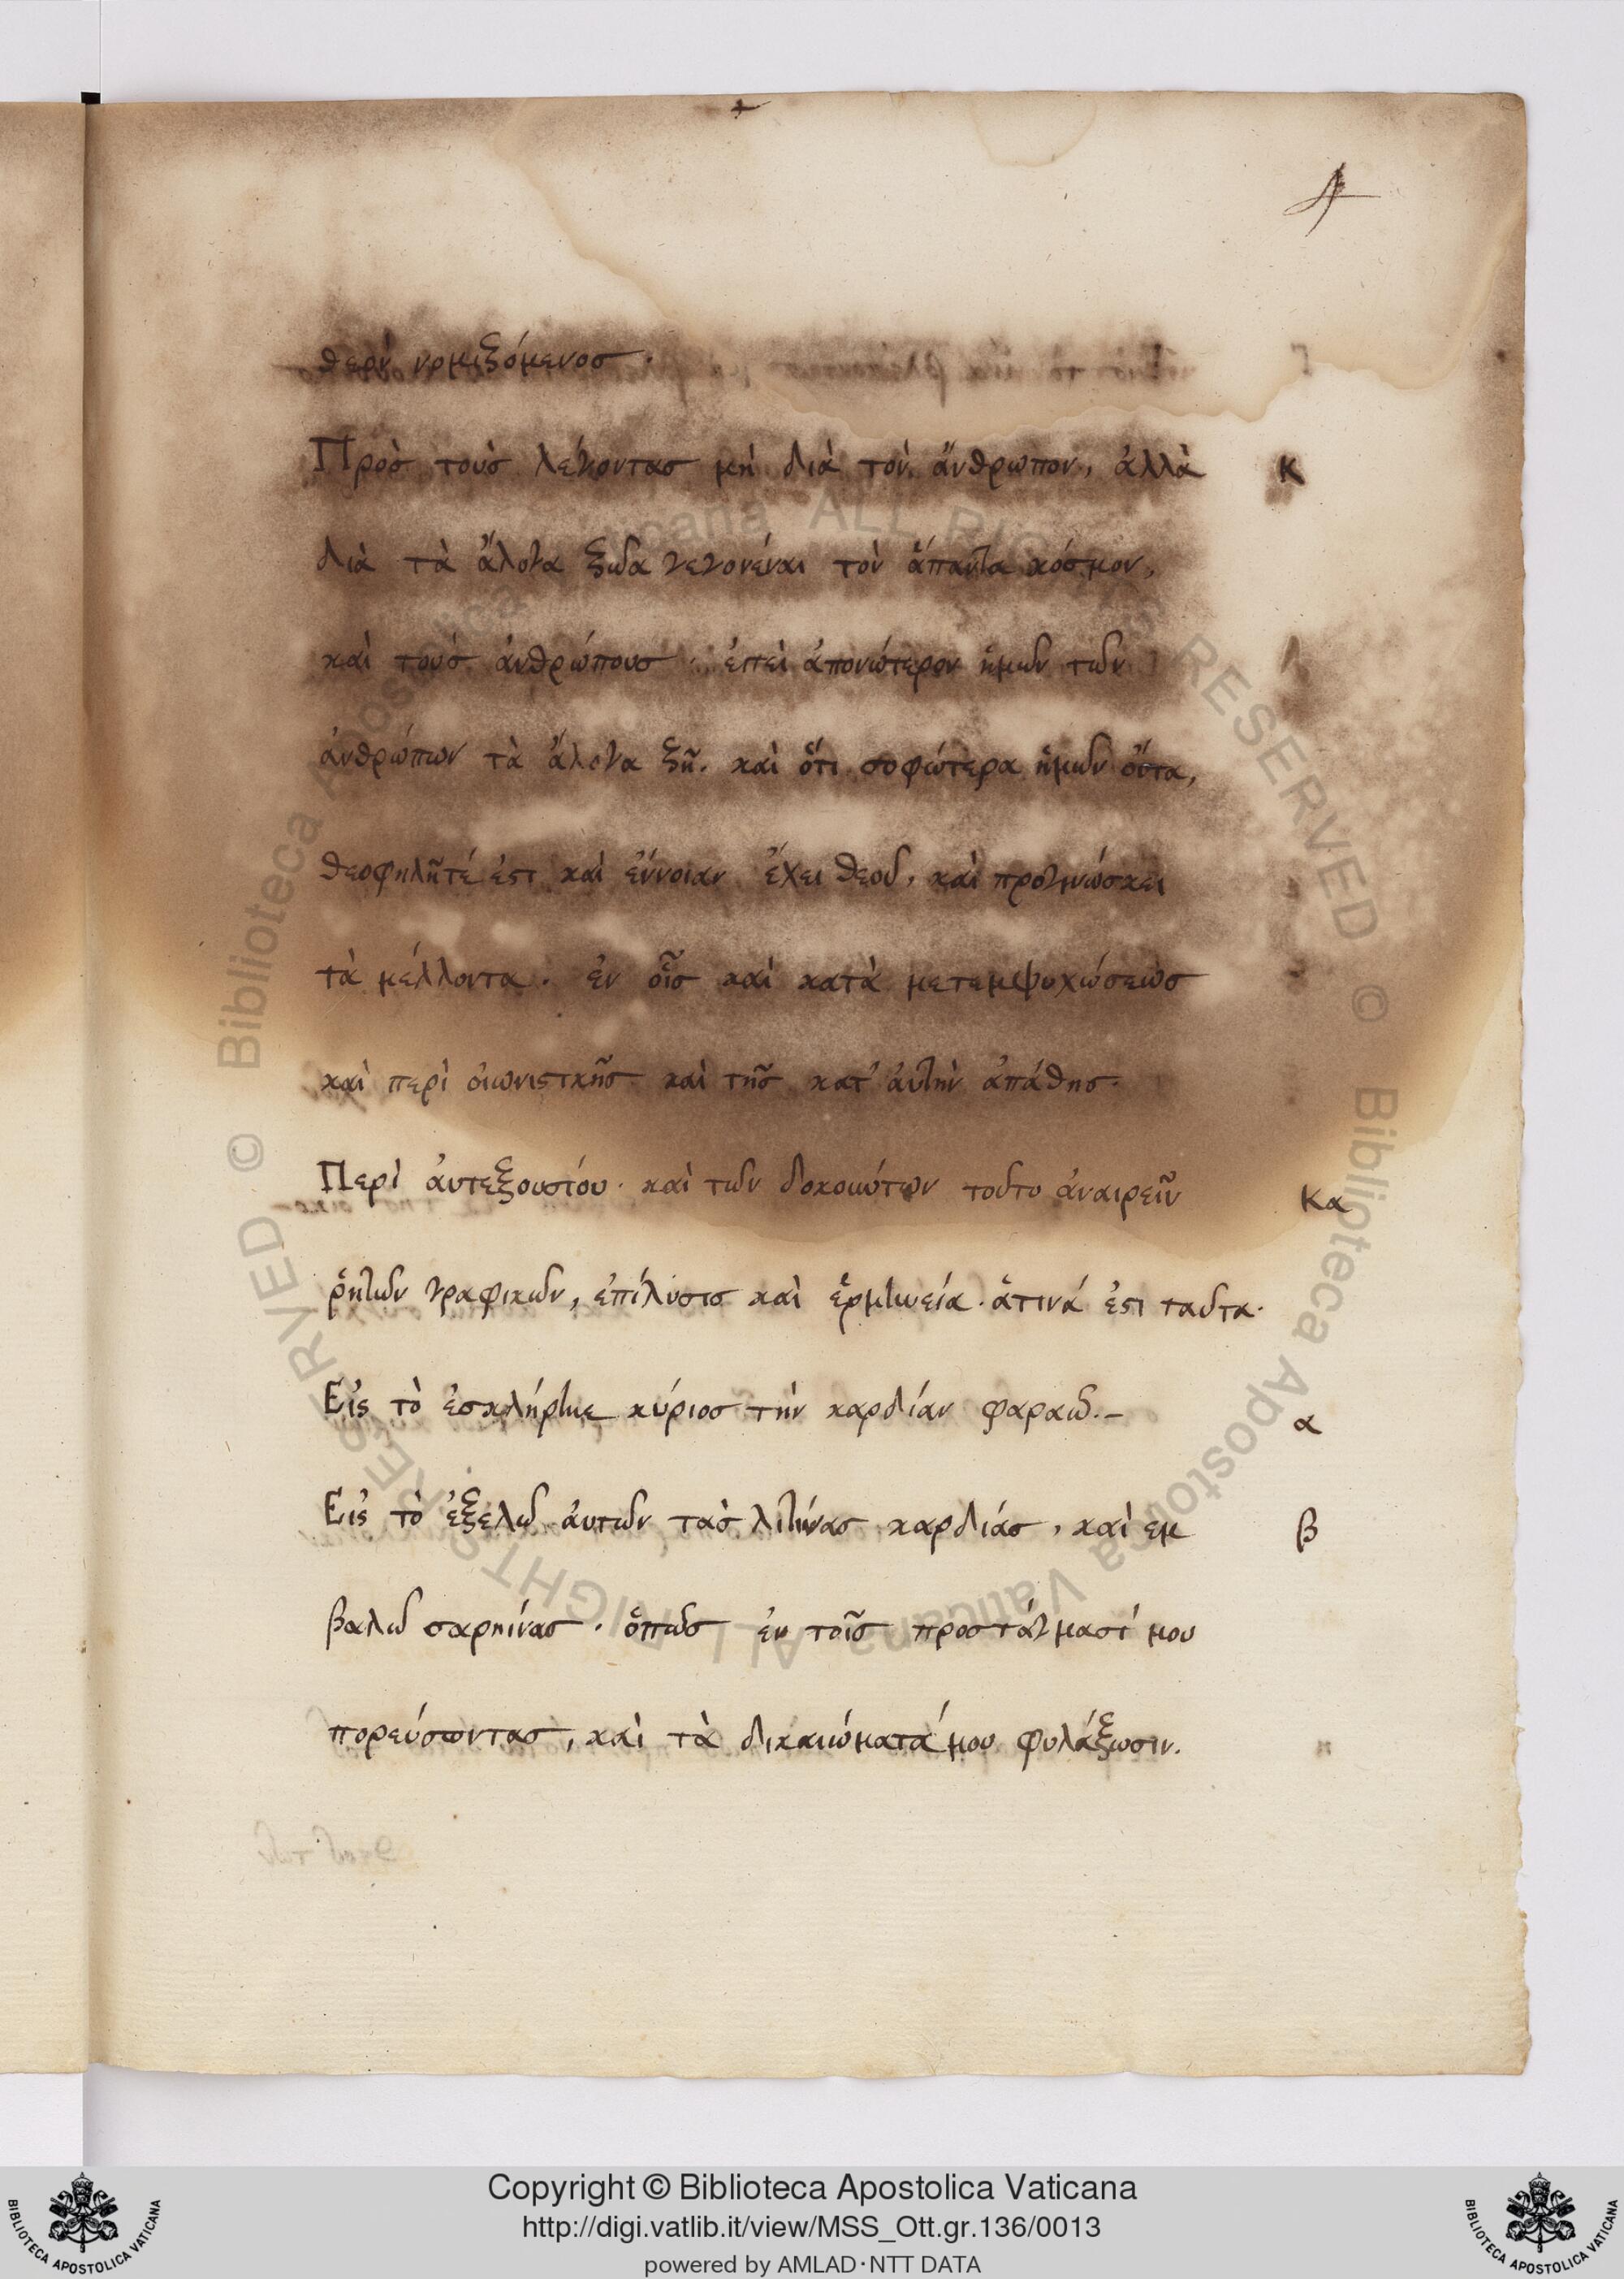 4
θερὶ νομιζόμενος.
Πρὸς τοὺς λέγοντας μὴ διὰ τὸν ἄνθρωπον, ἀλλὰ Κ
διὰ τὰ ἄλογα ζῶα γεγονέναι τὸν ἅπαντα κόσμον,
καὶ τοὺς ἀνθρώπους. ἐπεὶ ἀπονώτερον ἡμῶν τῶν
ἀνθρώπων τὰ ἄλογα ζῆ. καὶ ὅτι σοφώτερα ἡμῶν ὄντα,
θεοφηλῆτέ ἐστι καὶ ἔννοιαν ἔχει θεοῦ, καὶ προγινώσκει
τὰ μέλλοντα. ἐν οἷς καὶ κατὰ μετεμψυχώσεως
καὶ περὶ οἰωνιστκῆς καὶ τῆς κατ' ἀυτὴν ἀπάθης.
Περὶ ἀυτεξουσίου. καὶ τῶν δοκουώτων τοῦτο ἀναιρεῖν Κα
ῥητῶν γραφικῶν, ἐπίλυσις καὶ ἑρμηνεία. ἅτινά ἐστι ταῦτα.
Εἰς τὸ ἐσκλήρυνε κύριος τὴν καρδίαν φαραώ.- α
Εἰς τὸ ἐξελῶ ἀυτῶν τὰς λιθίνας καρδιάς, καὶ εμ β
βαλῶ σαρκίνας. ὅπως ἐν τοῖς προστάγμασί μου
πορεύσωντας, καὶ τὰ δικαιώματά μου φυλάξωσιν.
Copyright © Biblioteca Apostolica Vaticana
http://digi.vatlib.it/view/MSS_Ott.gr.136/0013
powered by AMLAD·NTT DATA
BIBLIOTECA APOSTOLICA VATICANA
BIBLIOTECA APOSTOLICA VATICANA